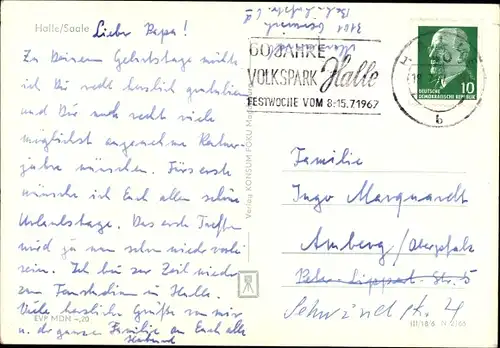 Halle/Saale
Lieber Papa!
Zu Deinem Geburtstage möchte
ich Dir recht herzlich gratulieren
und Dir noch recht viele
möglichst angenehme
jahre wünschen. Fürs erste
wünsche ich Euch allen schöne
Urlaubstage. Das erste Treffen
wird ja nun schon wieder vorbei
sein. Ich bin zur Zeit wieder
zum Fernstudium in Halle.
Viele herzliche Grüße von mir
u. der ganzen Familie an Euch alle
EVP MDN -,20
Verlag KONSUM FOKU
60 JAHRE
VOLKSPARK Halle
FESTWOCHE VOM 8.-15.7.1967
DEUTSCHE
DEMOKRATISCHE REPUBLIK
10
b
Familie
Ingo Marquardt
Amberg/Oberpfalz
Str. 5
Str. 4
III/18/6